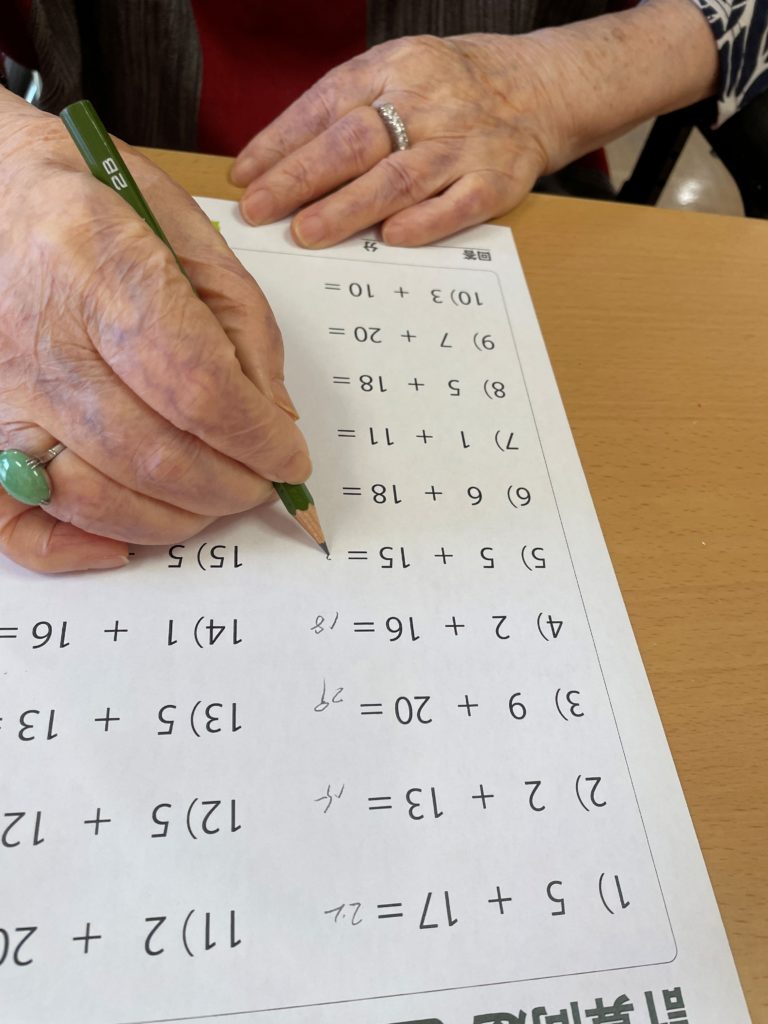 計算問題
1) 5 + 17 = 22
2) 2 + 13 = 15
3) 9 + 20 = 29
4) 2 + 16 = 18
5) 5 + 15 =
6) 6 + 18 =
7) 1 + 11 =
8) 5 + 18 =
9) 7 + 20 =
10) 3 + 10 =
11) 2 + 20
12) 5 + 12
13) 5 + 13 =
14) 1 + 16 =
15) 5
回答 分
2B